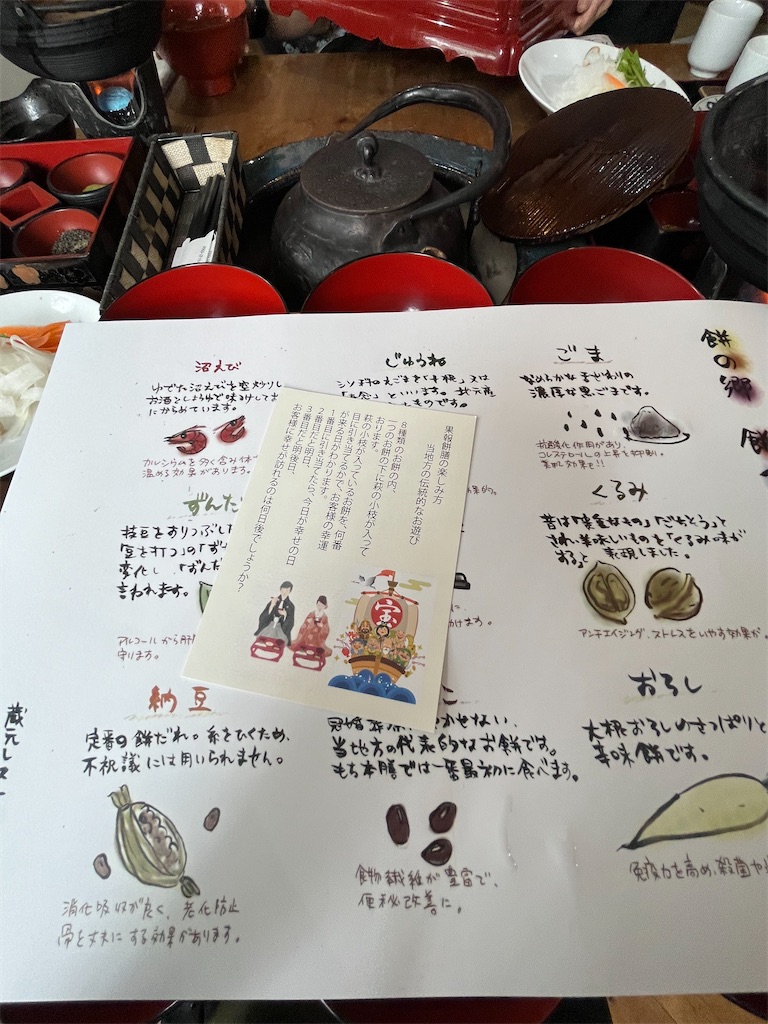 餅の郷
ごま
なめらかな舌ざわりの
濃厚な黒ごまです。
抗酸化作用があり、
コレステロールの上昇を抑制。
美肌効果も!!
じゅうね
沼えび
ゆでた沼えびを空炒りし
お酒としょうゆで味付けしてお
にからめています。
カルシウムを多く含み体
温める効果があります。
くるみ
昔は「貴重なもの」「ごちそう」と
され、美味しいものを「くるみ味が
する」と表現しました。
アンチエイジング、ストレスをいやす効果が
ずんだ
枝豆をすりつぶした
「豆を打つ」の「ずん
変化し「ずんだ
言われます。
アルコールから肝
守ります。
おろし
大根おろしのさっぱりと
辛味餅です。
免疫力を高め、殺菌や
かせない、
当地方の代表的なお餅です。
もち本膳では一番最初に食べます。
食物繊維が豊富で、
便秘改善に。
納豆
定番の餅だれ。糸をひくため、
不祝議には用いられません。
消化吸収が良く、老化防止
骨を丈夫にする効果があります。
蔵元レス
果報餅膳の楽しみ方
当地方の伝統的なお遊び
8種類のお餅の内、
一つのお餅の下に萩の小枝が入って
おります。
萩の小枝が入っているお餅を、何番
目に引き当てるかで、お客様の幸運
が来る日がわかります。
1番目に引き当てたら、今日が幸せの日
2番目だと明日、
3番目だと明後日、
お客様に幸せが訪れるのは何日後でしょうか？
宝